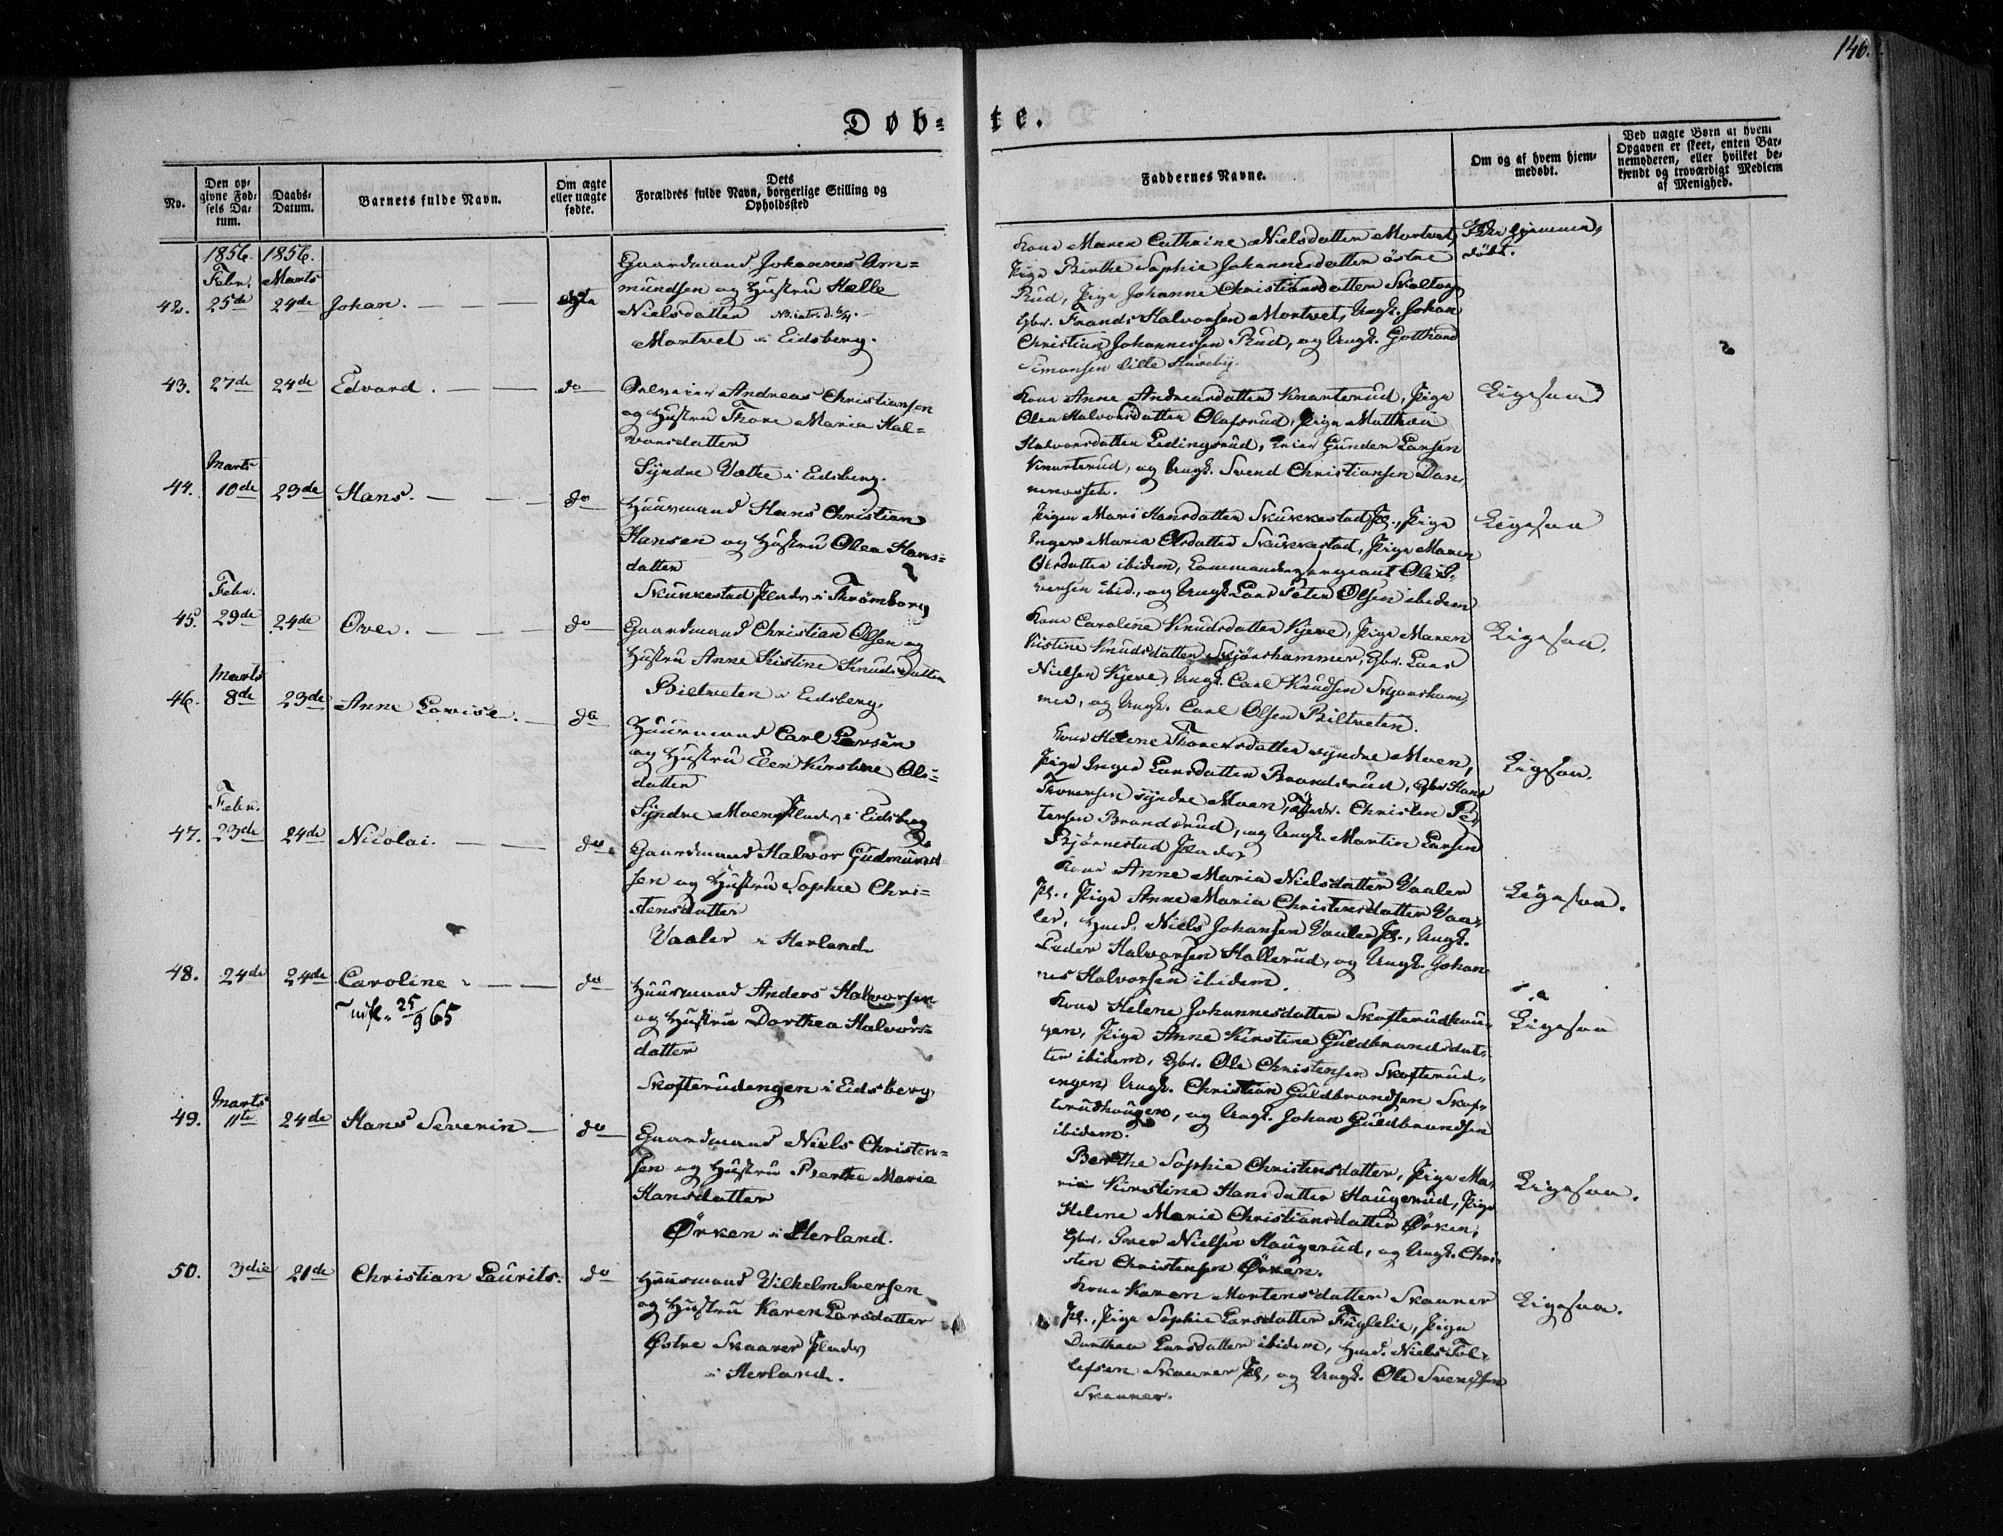 146.
Døb-
te.
No.
Den op-
givne Fød-
sels Da-
tum.
Daabs-
Datum.
Barnets fulde Navn.
Om ægte
eller uægte
fødte.
Dets
Forældres fulde Navn, borgerlige Stilling og
Opholdssted
Faddernes Navne.
Om og af hvem hjem-
medøbt.
Ved uægte Børn af hvem
Opgaven er skeet, enten Bar-
nemoderen, eller hvilket be-
kjendt og troværdigt Medlem
af Menighed.
1856. 1856.
Febr. Marts
42. 25de 24de Johan. ægte
Gaardmand Johannes Am-
mundsen og Hustru Helle
Nielsdatter
Mortvet i Eidsberg.
Kone Maren Cathrine Nielsdatter Mortvet,
Pige Birthe Sophie Johannesdatter østre
Rud, Pige Johanne Christiansdatter
Gbr. Frands Halvorsen Mortvet, Ungk. Johan
Christian Johannessen Rud, og Ungk. Gotthard
Simonsen Lille Huseby.
Ikke hjemme-
døbt.
43. 27de 24de Edvard. do
Andreas Christiansen
og Hustru Thore Maria Hal-
vorsdatter
Syndre Vatte i Eidsberg.
Kone Anne Andreasdatter Knarterud, Pige
Olea Halvorsdatter Olafsrud, Pige Matthea
Halvorsdatter Ledingsrud, Gunder Larsen
Knarterud, og Ungk. Svend Christiansen Dan-
Ligesaa
Marts
44. 10de 23de Hans. do
Huusmand Hans Christian
Hansen og Hustru Olea Hans-
datter
Skukkestad Plads i Thrømborg
Pigen Mari Hansdatter Skukkestad Pl., Pige
Inger Maria Olsdatter Skukkestad, Pige Maren
Olsdatter ibidem, Commandeersergeant Ole I-
versen ibid., og Ungk. Lars Peter Olsen ibidem
Ligesaa
Febr.
45. 29de 24de Ove. do
Gaardmand Christian Olsen og
Hustru Anne Kistine Knudsdatter
Biltveten i Eidsberg.
Kone Caroline Knudsdatter Kjeve, Pige Maren
Kistine Knudsdatter Skjønhammer, Gbr. Lars
Nielsen Kjeve, Ungk. Carl Knudsen Skjønham-
mer, og Ungk. Carl Olsen Biltveten.
Ligesaa.
Marts
46. 8de 23de Anne Lovise. do
Huusmand Carl Larsen
og Hustru Elen Kirstine Ols-
datter
Syndre Moen Plads i Eidsberg
Kone Helene Thorersdatter syndre Moen,
Pige Inger Larsdatter Brandsrud, Gbr. Hans
Thorersen syndre Moen, Christen Pe-
tersen Brandsrud, og Ungk. Martin Larsen
Bjørnestad Plads
Ligesaa.
Febr.
47. 23de 24de Nicolai. do
Gaardmand Halvor Gudmund-
sen og Hustru Sophie Chri-
stensdatter
Vaaler i Herland
Kone Anne Maria Nielsdatter Vaaler
Pl., Pige Anne Maria Christensdatter Vaa-
ler, Huusm. Niels Johansen Vaaler Pl., Ungk.
Peder Halvorsen Hallerud, og Ungk. Johan-
nes Halvorsen ibidem.
Ligesaa.
48. 24de 24de Caroline do
udfl. 25/9 65
Huusmand Anders Halvorsen
og Hustru Dorthea Halvors-
datter
Skofterudengen i Eidsberg
Kone Helene Johannesdatter Skofterudhou-
gen, Pige Anne Kirstine Guldbrandsdat-
ter ibidem, Gbr. Ole Christensen Skofterud-
engen, Ungk. Christian Guldbrandsen Skof-
terudhougen, og Ungk. Johan Guldbrandsen
ibidem.
Ligesaa
Marts
49. 11te 24de Hans Severin do
Gaardmand Niels Christen-
sen og Hustru Berthe Marie
Hansdatter
Ørken i Herland.
Berthe Sophie Christensdatter, Pige Ma-
rie Kirstine Hansdatter Haugerud, Pige
Helene Marie Christiansdatter Ørken,
Gbr. Iver Nielsen Haugerud, og Ungk. Chri-
sten Christensen Ørken.
Ligesaa.
50. 3die 21de Christian Laurits. do
Huusmand Vilhelm Iversen
og Hustru Karen Larsdatter
Østre Skaarer Plads
i Herland.
Kone Karen Mortensdatter Skaarer
Pl., Pige Sophie Larsdatter Fuglelie, Pige
Dorthea Larsdatter ibidem, Huusm. Niels Tol-
lefsen Skaarer Pl., og Ungk. Ole Svendsen
Skaarer.
Ligesaa.